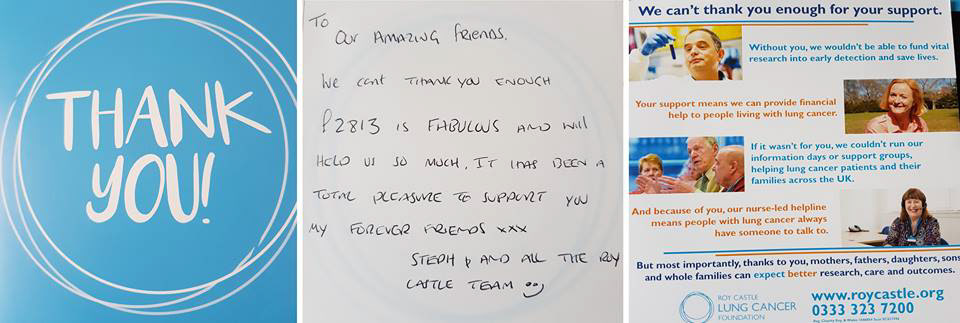 THANK
YOU!
To
Our AMAZING friends.
We cant THANK YOU ENOUGH
£2813 is FABULOUS AND will
HELP US SO MUCH. IT HAS BEEN A
TOTAL PLEASURE TO SUPPORT YOU
MY FOREVER FRIENDS xxx
STEPH AND ALL THE ROY
CASTLE TEAM
We can't thank you enough for your support.
Without you, we wouldn't be able to fund vital
research into early detection and save lives.
Your support means we can provide financial
help to people living with lung cancer.
If it wasn't for you, we couldn't run our
information days or support groups,
helping lung cancer patients and their
families across the UK.
And because of you, our nurse-led helpline
means people with lung cancer always
have someone to talk to.
But most importantly, thanks to you, mothers, fathers, daughters, sons
and whole families can expect better research, care and outcomes.
ROY CASTLE
LUNG CANCER
FOUNDATION
www.roycastle.org
0333 323 7200